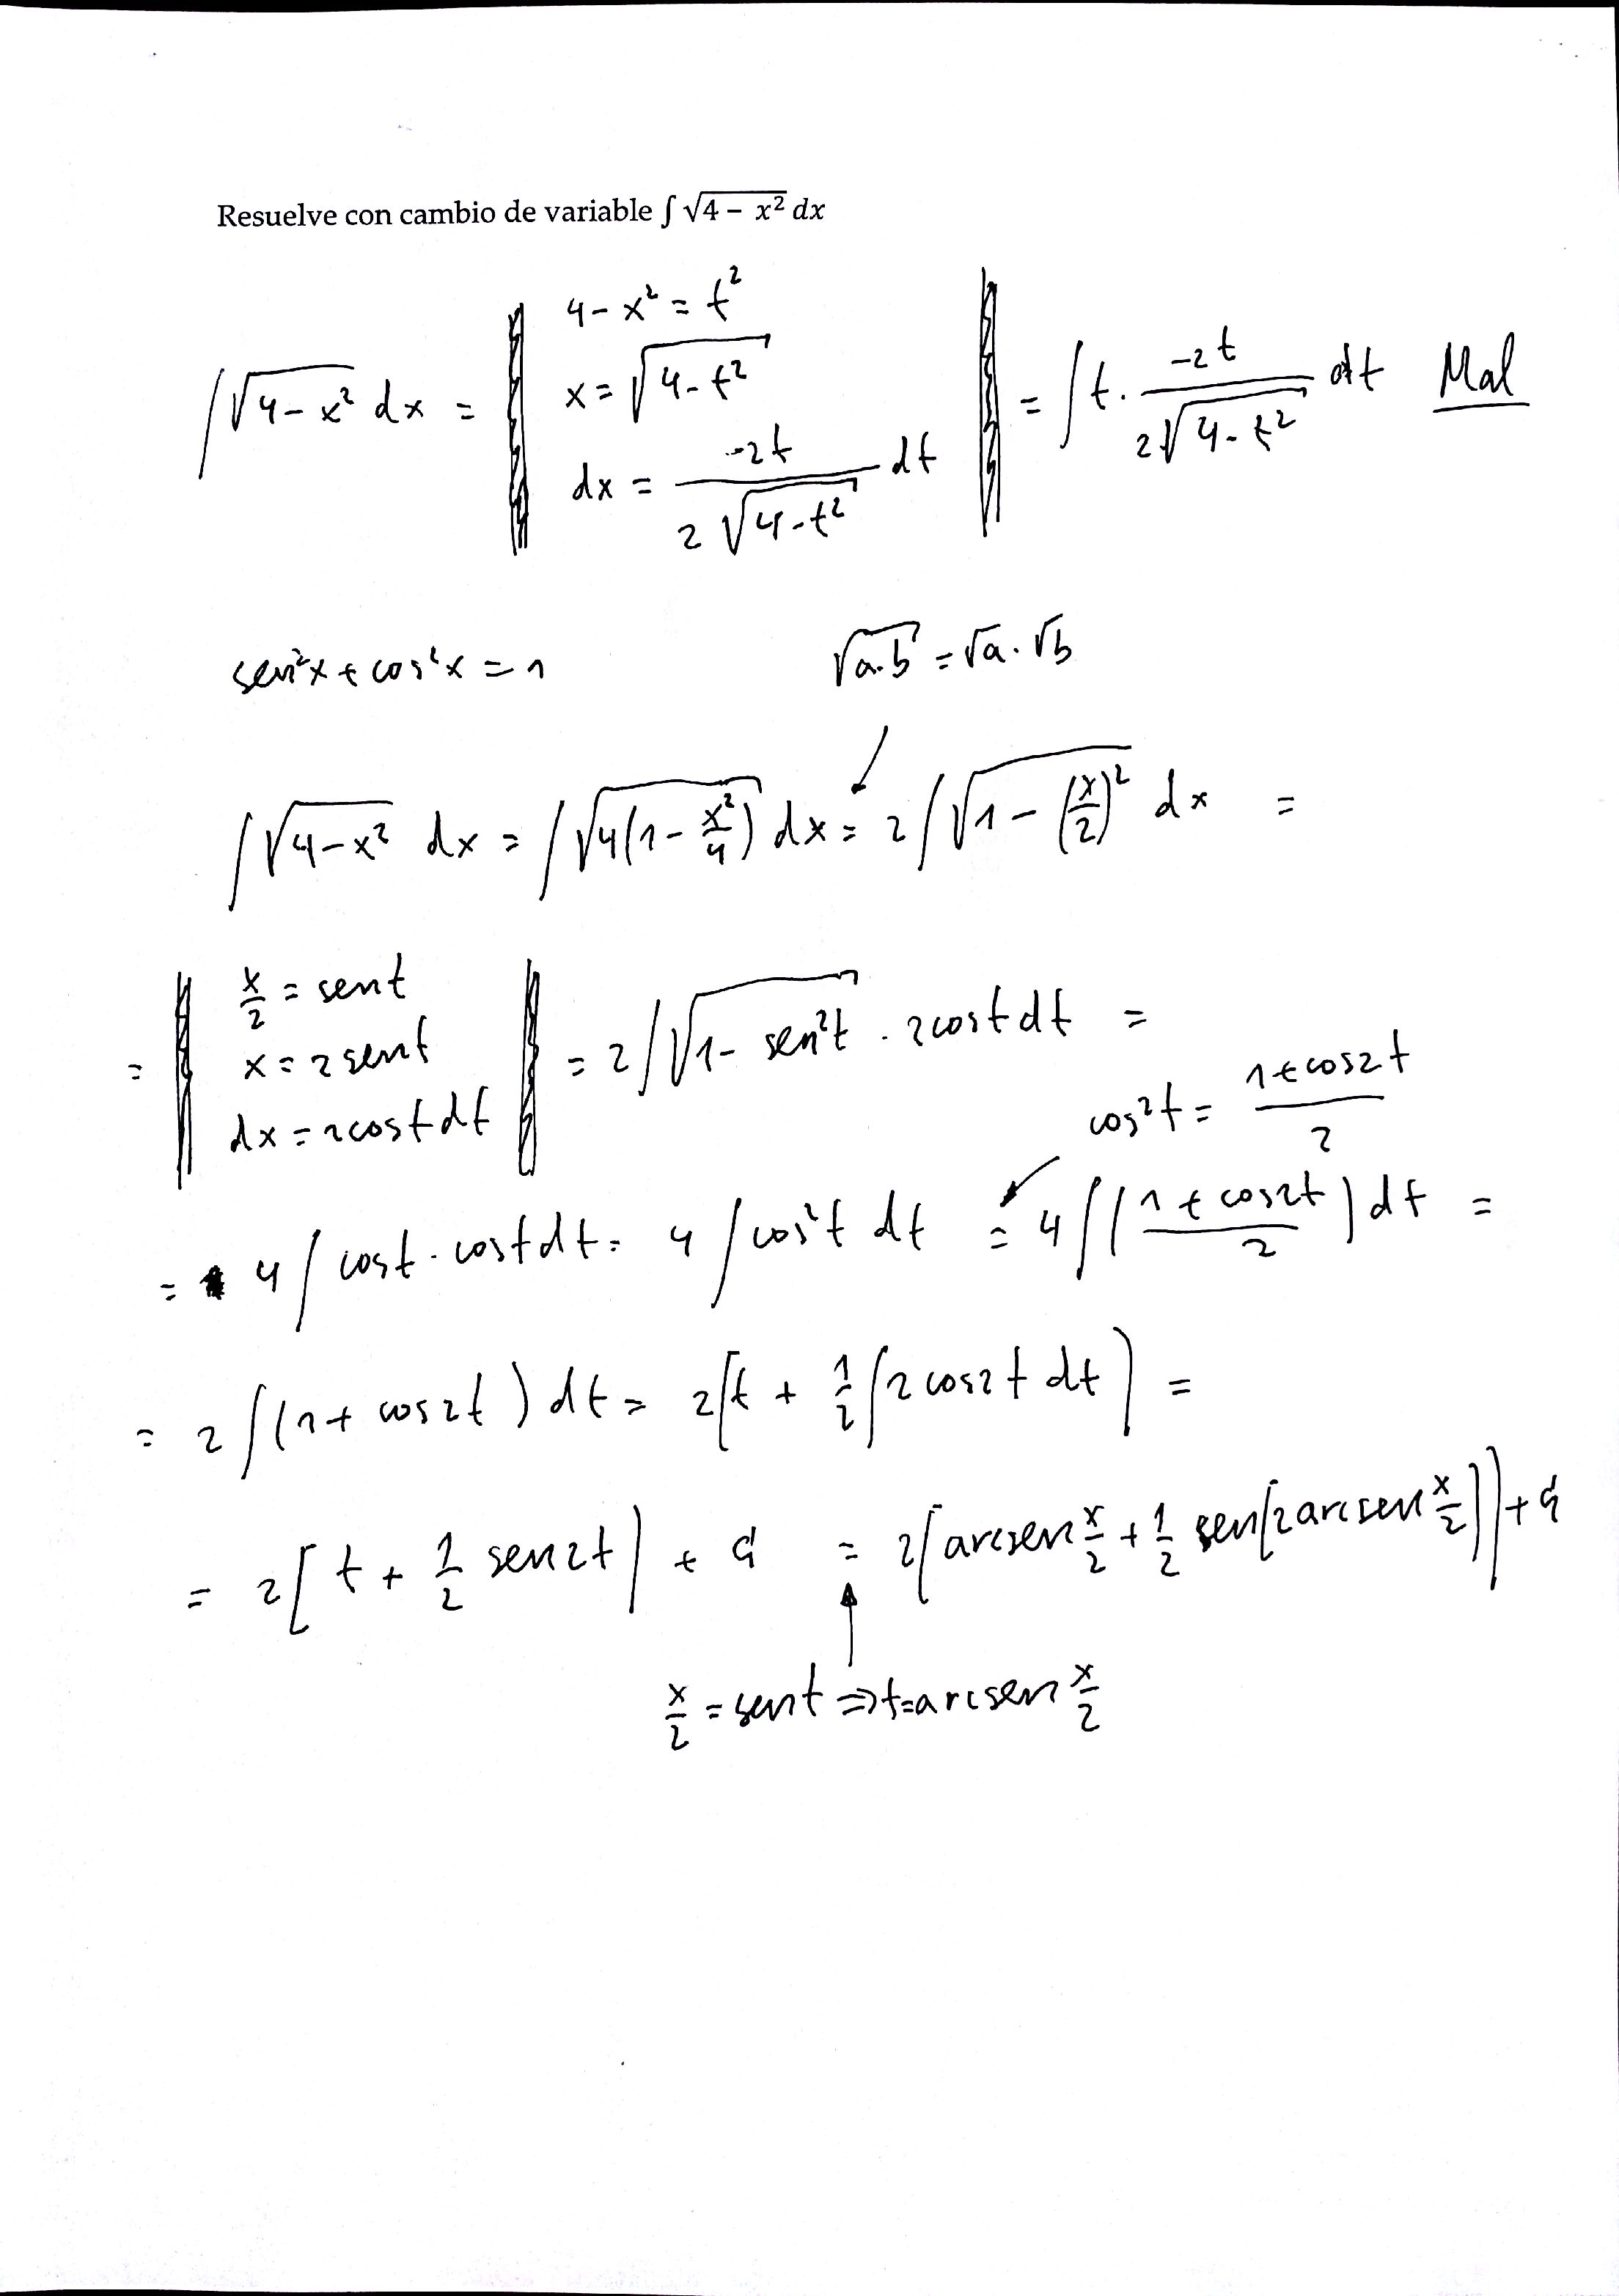 Resuelve con cambio de variable ∫ √(4 − x²) dx
∫ √(4−x²) dx = || 4−x² = t² ; x = √(4−t²) ; dx = −2t / (2√(4−t²)) dt || = ∫ t · −2t / (2√(4−t²)) dt Mal
sen²x + cos²x = 1 √(a·b) = √a · √b
∫ √(4−x²) dx = ∫ √(4(1 − x²/4)) dx = 2 ∫ √(1 − (x/2)²) dx =
= || x/2 = sen t ; x = 2 sen t ; dx = 2 cos t dt || = 2 ∫ √(1 − sen²t) · 2 cos t dt =
cos²t = (1 + cos 2t)/2
= 4 ∫ cos t · cos t dt = 4 ∫ cos²t dt = 4 ∫ ((1 + cos 2t)/2) dt =
= 2 ∫ (1 + cos 2t) dt = 2[t + 1/2 ∫ 2 cos 2t dt] =
= 2[t + 1/2 sen 2t] + C₁ = 2[arcsen x/2 + 1/2 sen[2 arcsen x/2]] + C₁
x/2 = sen t ⇒ t = arcsen x/2